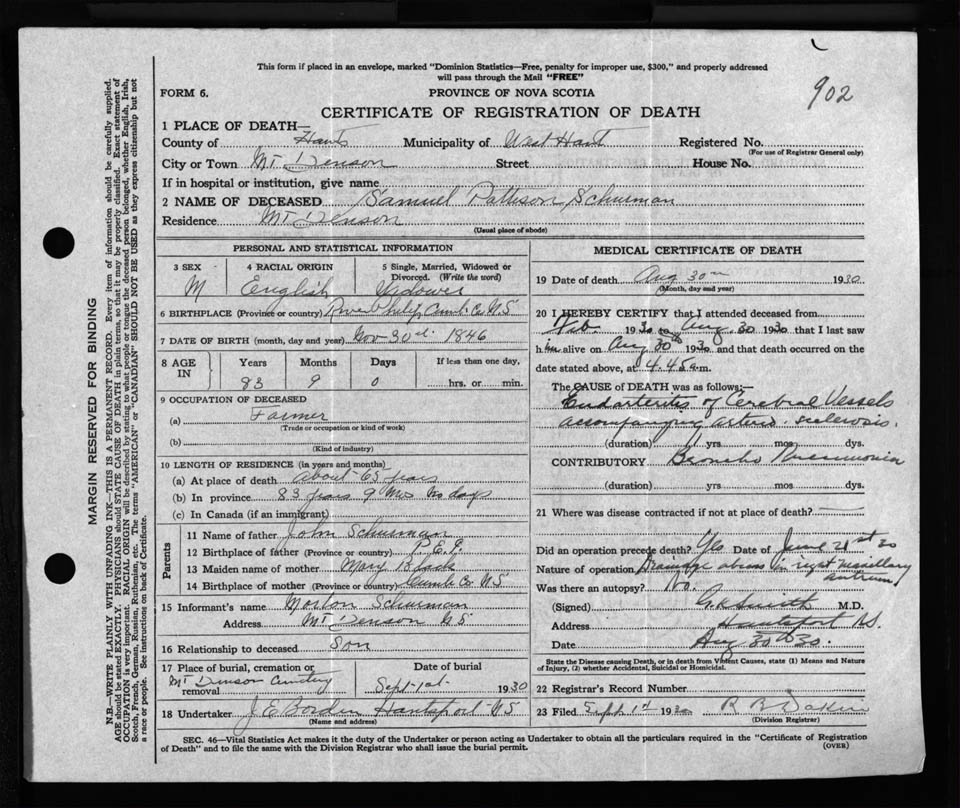 This form if placed in an envelope, marked "Dominion Statistics—Free, penalty for improper use, $300," and properly addressed
will pass through the Mail "FREE"
902
FORM 6.
PROVINCE OF NOVA SCOTIA
CERTIFICATE OF REGISTRATION OF DEATH
MARGIN RESERVED FOR BINDING
N.B.—WRITE PLAINLY WITH UNFADING INK—THIS IS A PERMANENT RECORD. Every item of information should be carefully supplied.
AGE should be stated EXACTLY. PHYSICIANS should STATE CAUSE OF DEATH in plain terms, so that it may be properly classified. Exact statement of
OCCUPATION is very important. RACIAL ORIGIN will be described by stating to what people or tongue the deceased person belonged, whether English, Irish,
Scotch, French, German, Russian, Ruthenian, etc. The terms "AMERICAN" or "CANADIAN" SHOULD NOT BE USED as they express citizenship but not
a race or people. See instructions on back of Certificate.
1 PLACE OF DEATH—
County of Hants Municipality of West Hant Registered No.
(For use of Registrar General only)
City or Town Mt Denson Street House No.
If in hospital or institution, give name
2 NAME OF DECEASED Samuel Patteson Schurman
Residence Mt Denson
(Usual place of abode)
PERSONAL AND STATISTICAL INFORMATION
3 SEX 4 RACIAL ORIGIN 5 Single, Married, Widowed or
Divorced. (Write the word)
M English Widower
6 BIRTHPLACE (Province or country) River Philip Cumb. Co N.S
7 DATE OF BIRTH (month, day and year) Nov 30th 1846
8 AGE IN Years Months Days If less than one day,
83 9 0 hrs. or min.
9 OCCUPATION OF DECEASED
(a) Farmer
(Trade or occupation or kind of work)
(b)
(Kind of industry)
10 LENGTH OF RESIDENCE (in years and months)
(a) At place of death about 65 years
(b) In province 83 years 9 mos no days
(c) In Canada (if an immigrant)
Parents
11 Name of father John Schurman
12 Birthplace of father (Province or country) P.E.I.
13 Maiden name of mother Mary Black
14 Birthplace of mother (Province or country) Cumb Co N S
15 Informant's name Morton Schurman
Address Mt Denson N.S.
16 Relationship to deceased Son
17 Place of burial, cremation or
removal Mt Denson Cemetery
Date of burial
Sept 1st 1930
18 Undertaker J E Borden Hantsport N S
(Name and address)
MEDICAL CERTIFICATE OF DEATH
19 Date of death Aug 30th 1930
(Month, day and year)
20 I HEREBY CERTIFY that I attended deceased from
Feb 1930 to Aug. 30 1930 that I last saw
him alive on Aug 30th 1930 and that death occurred on the
date stated above, at 4.45 a.m.
The CAUSE OF DEATH was as follows:—
Endarteritis of Cerebral Vessels
accompanying arterio-sclerosis.
(duration) yrs mos dys.
CONTRIBUTORY Broncho Pneumonia
(duration) yrs. mos. dys.
21 Where was disease contracted if not at place of death?
Did an operation precede death? Yes Date of June 21st 30
Nature of operation Drainage abscess in right maxillary
antrum
Was there an autopsy? No.
(Signed) Smith M.D.
Address Hantsport N.S.
Date Aug 30th 30.
State the Disease causing Death, or in death from Violent Causes, state (1) Means and Nature
of Injury, (2) whether Accidental, Suicidal or Homicidal.
22 Registrar's Record Number
23 Filed Sept 1st 1930 R B Dakin
(Division Registrar)
SEC. 46—Vital Statistics Act makes it the duty of the Undertaker or person acting as Undertaker to obtain all the particulars required in the "Certificate of Registration
of Death" and to file the same with the Division Registrar who shall issue the burial permit.
(OVER)